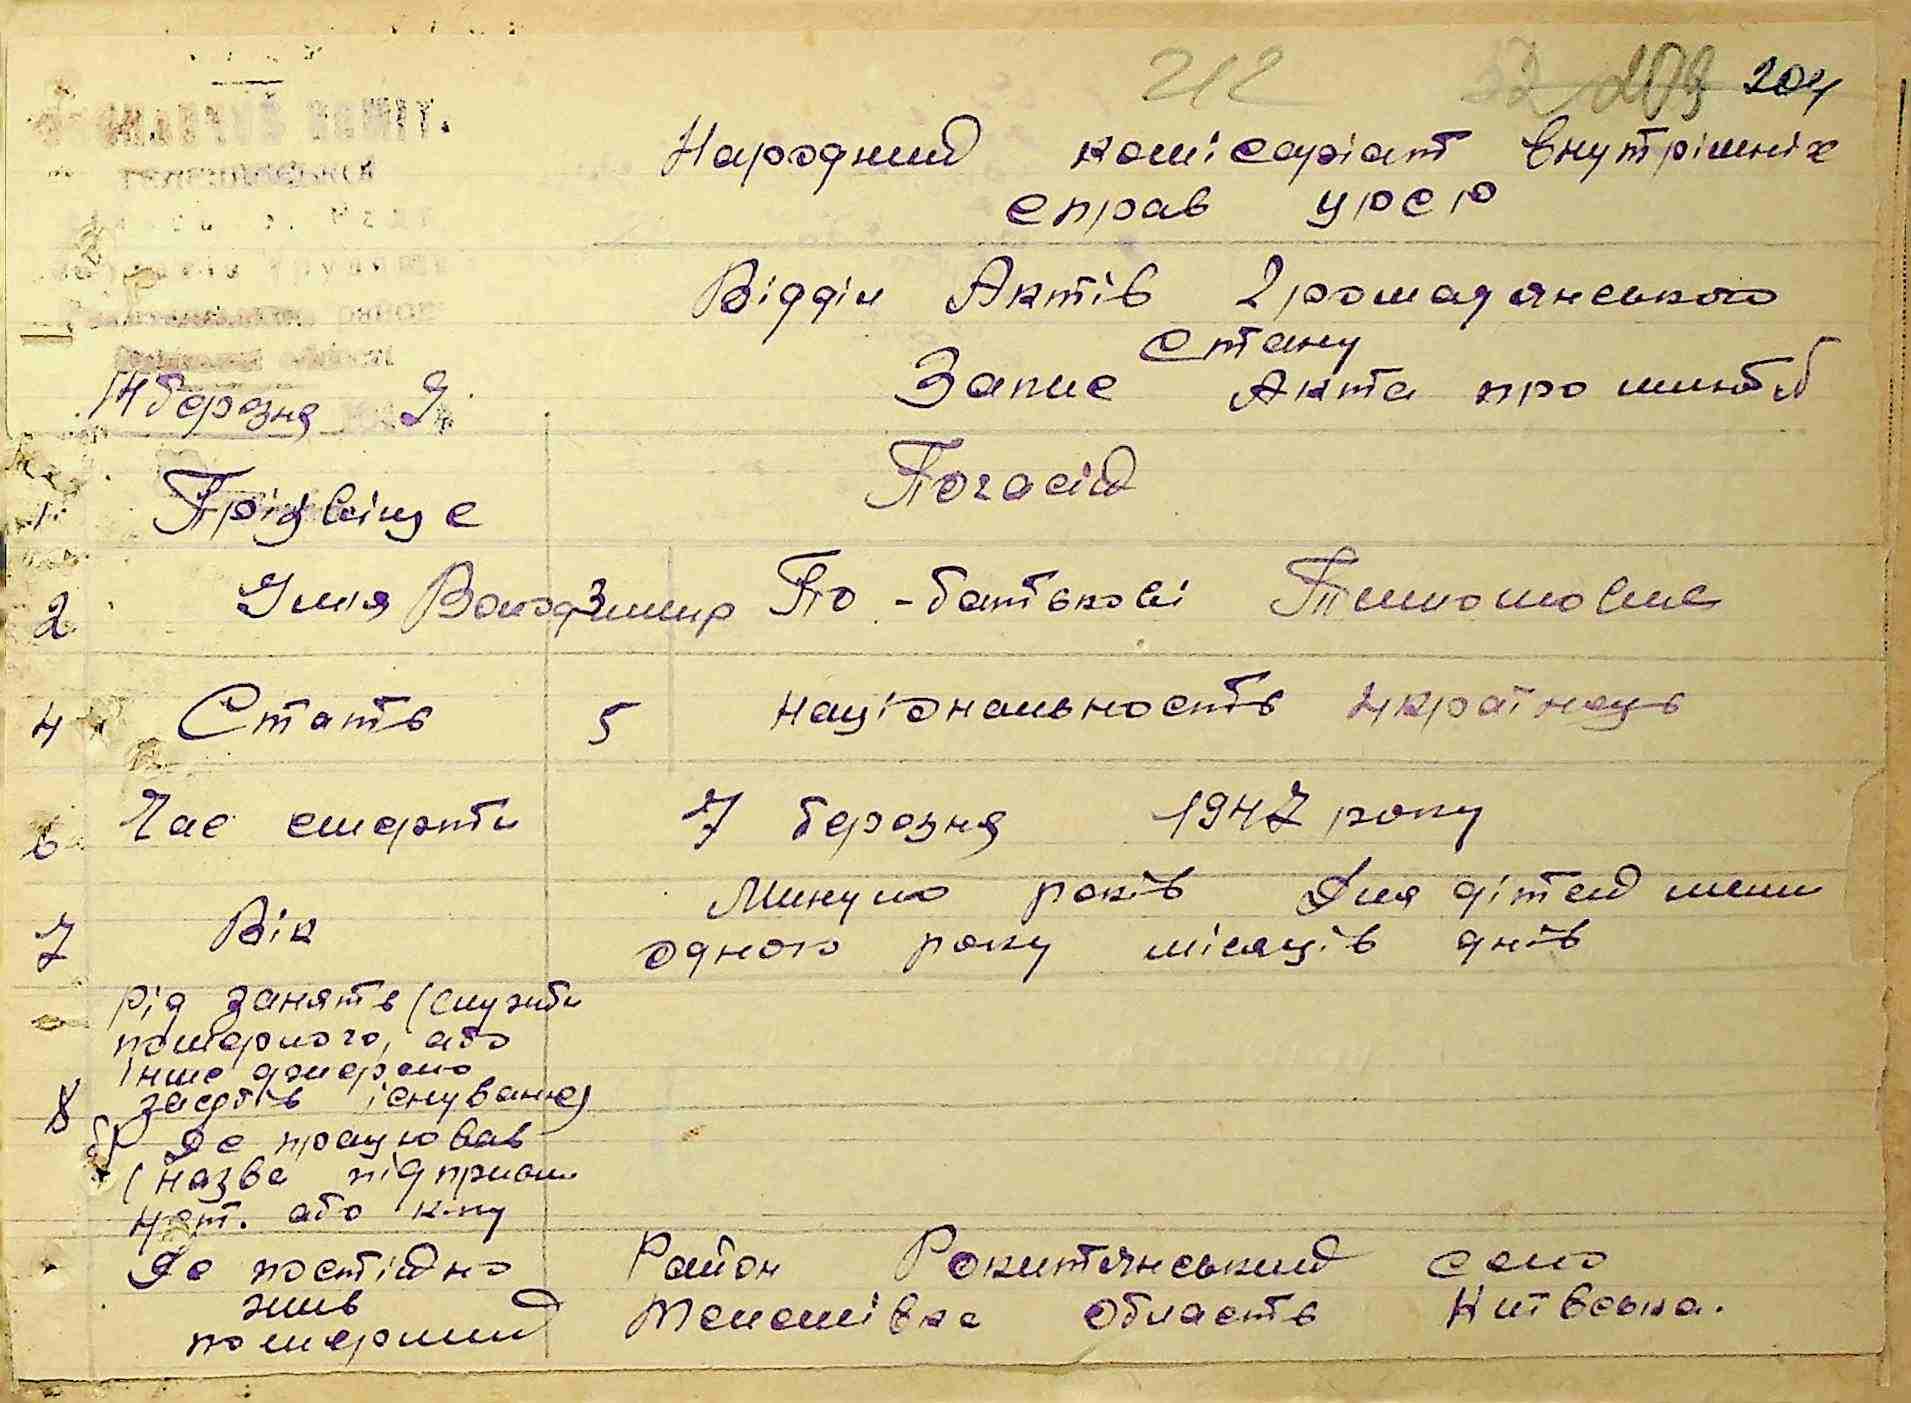 212 204
Народний комісаріат внутрішніх
справ УРСР
Відділ Актів Громадянського
Стану
Запис Акта про
14 березня
1 Прізвіще Погасій
2 Імія Володзимир По-батькові Тимошовис
4 Стать 5 національность українець
6 Час смерти 7 березня 1947 року
7 Вік Минуло років Для дітей менш
одного року місяців днів
рід занять (служби
померлого, або
інше джерело
8 засобів існування)
б) Де працював
(назва підприєм
нет. або к-пу
Де постійно Район Рокитянський село
жив Телешівка область Київська.
померший